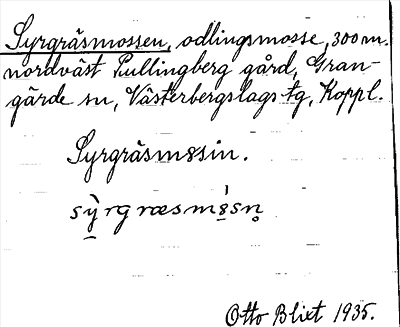 Syrgräsmossen, odlingsmosse, 300 m.
nordväst Pullingberg gård, Gran-
gärde sn, Västerbergslags tg, Koppl.
Syrgräsm8sin.
sỳ̱rgræsm8̱̀sn̥
Otto Blixt 1935.